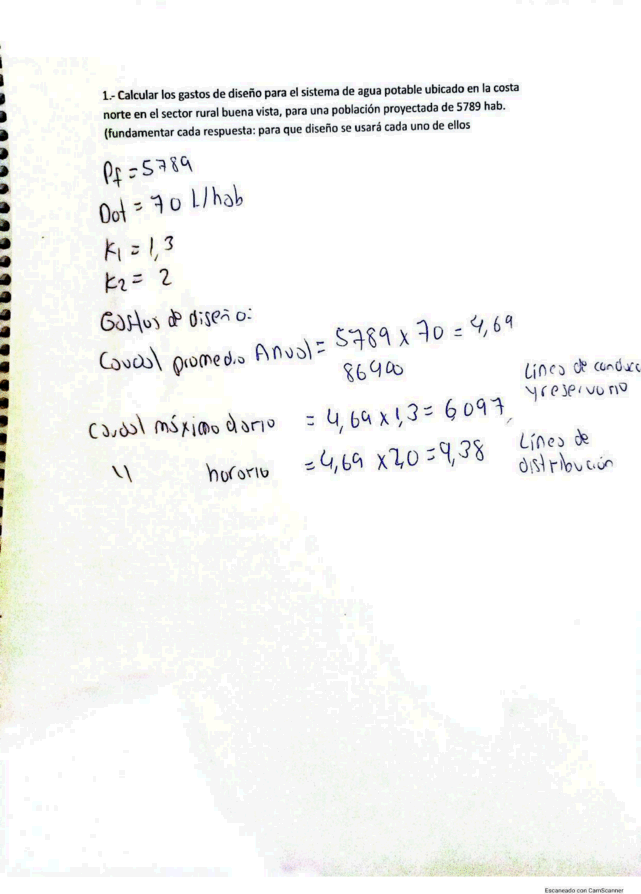 1.- Calcular los gastos de diseño para el sistema de agua potable ubicado en la costa
norte en el sector rural buena vista, para una población proyectada de 5789 hab.
(fundamentar cada respuesta: para que diseño se usará cada uno de ellos
Pf = 5789
Dot = 70 L/hab
K1 = 1,3
K2 = 2
Gastos de diseño:
Caudal promedio Anual = 5789 x 70 = 4,69
86400
Línea de conduc
y reservorio
Caudal máximo diario = 4,69 x 1,3 = 6,097
Línea de
distribución
" horario = 4,69 x 2,0 = 9,38
Escaneado con CamScanner